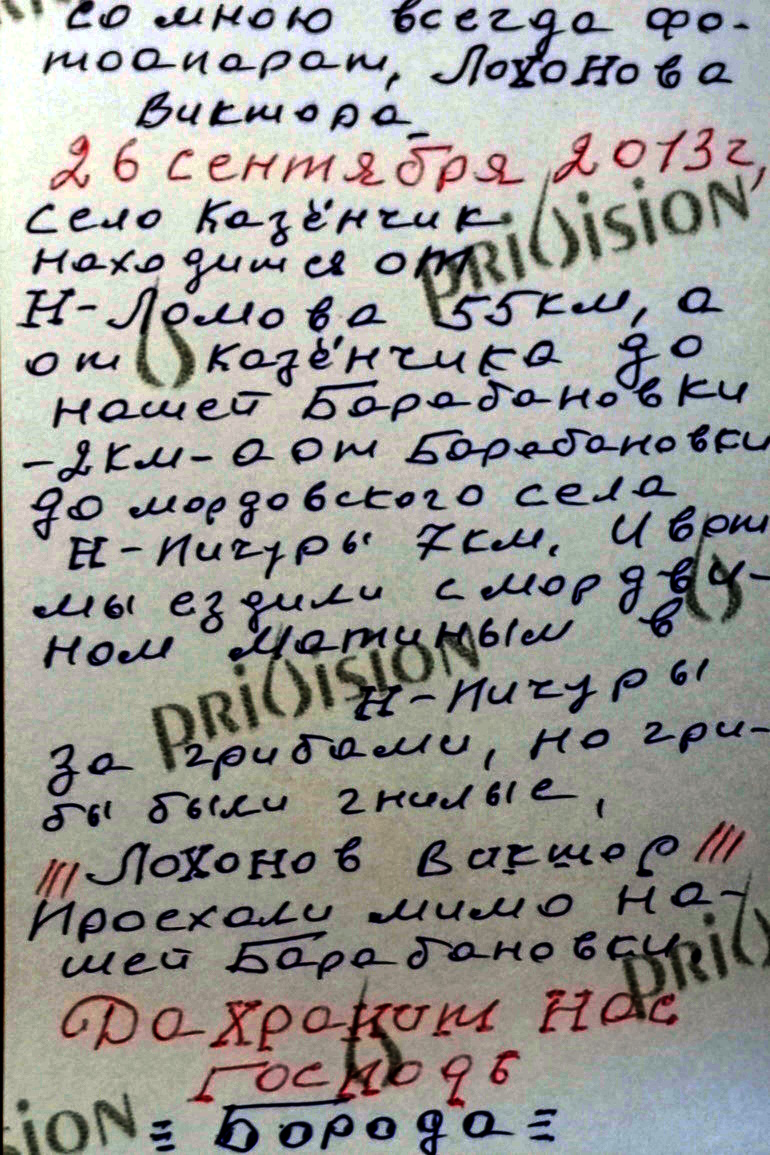 со мною всегда фо-
тоапарат, Лохонова
Виктора
26 сентября 2013г,
село Казёнчик
находится от
Н-Ломова 55км, а
от Казёнчика до
нашей Барабановки
-2км- а от Барабановки
до мордовского села
Н-Пичуры 7км, И вот
мы ездили с мордви-
ном Матиным в
Н-Пичуры
За грибами, но гри-
бы были гнилые,
||| Лохонов Виктор |||
Проехали мимо на-
шей Барабановки,
Да храпит нас
Господь
= Борода =